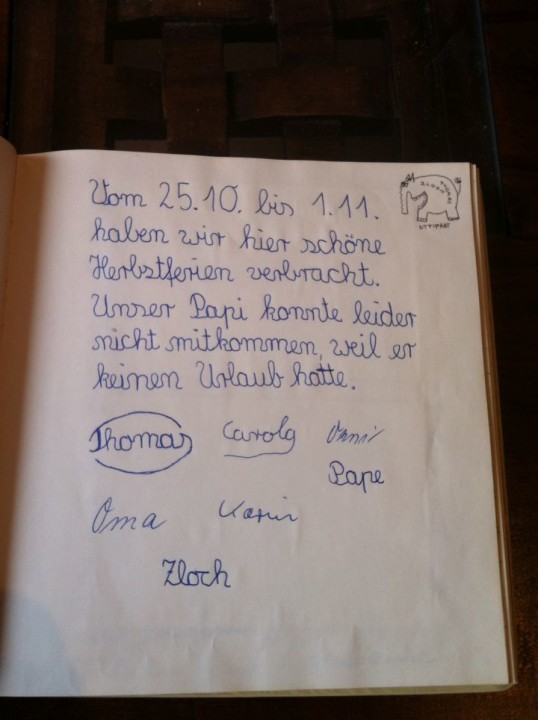 Vom 25.10. bis 1.11.
haben wir hier schöne
Herbstferien verbracht.
Unser Papi konnte leider
nicht mitkommen, weil er
keinen Urlaub hatte.
Thomas Carola
Pape
Oma Karin
Zloch